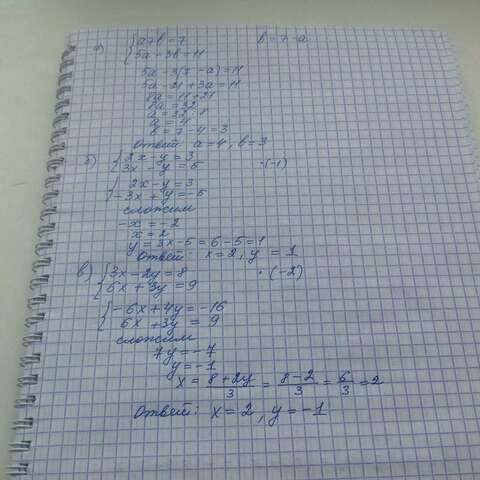 а) { a+b=7 b=7-a
5a-3b=11
5a-3(7-a)=11
5a-21+3a=11
8a=11+21
8a=32
a=4
b=7-4=3
Ответ: a=4, b=3
б) { 2x-y=3
3x-y=5 ·(-1)
{ 2x-y=3
-3x+y=-5
сложим
-x=-2
x=2
y=3x-5=6-5=1
Ответ: x=2, y=1
в) { 3x-2y=8 ·(-2)
6x+3y=9
{ -6x+4y=-16
6x+3y=9
сложим
7y=-7
y=-1
x = (8+2y)/3 = (8-2)/3 = 6/3 = 2
Ответ: x=2, y=-1